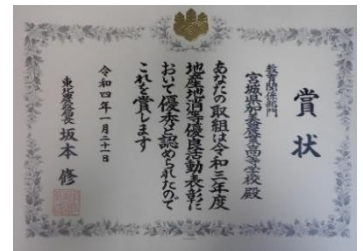 賞状
教育関係部門
宮城県加美農業高等学校 殿
あなたの取組は令和三年度
地産地消等優良活動表彰に
おいて優秀と認められたので
これを賞します
令和四年一月二十一日
東北農政局長 坂本 修